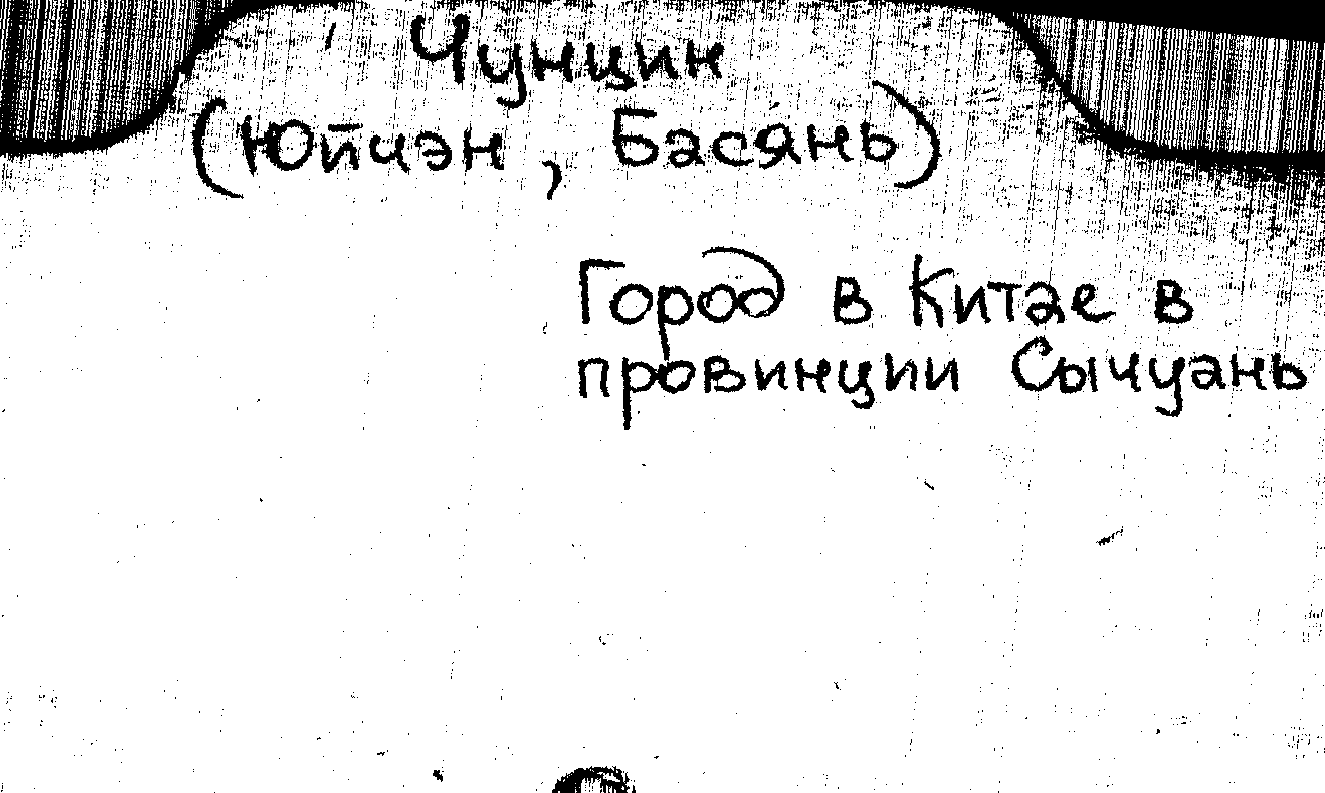 Чунцин
(Юйчэн, Басянь)
Город в Китае в
провинции Сычуань